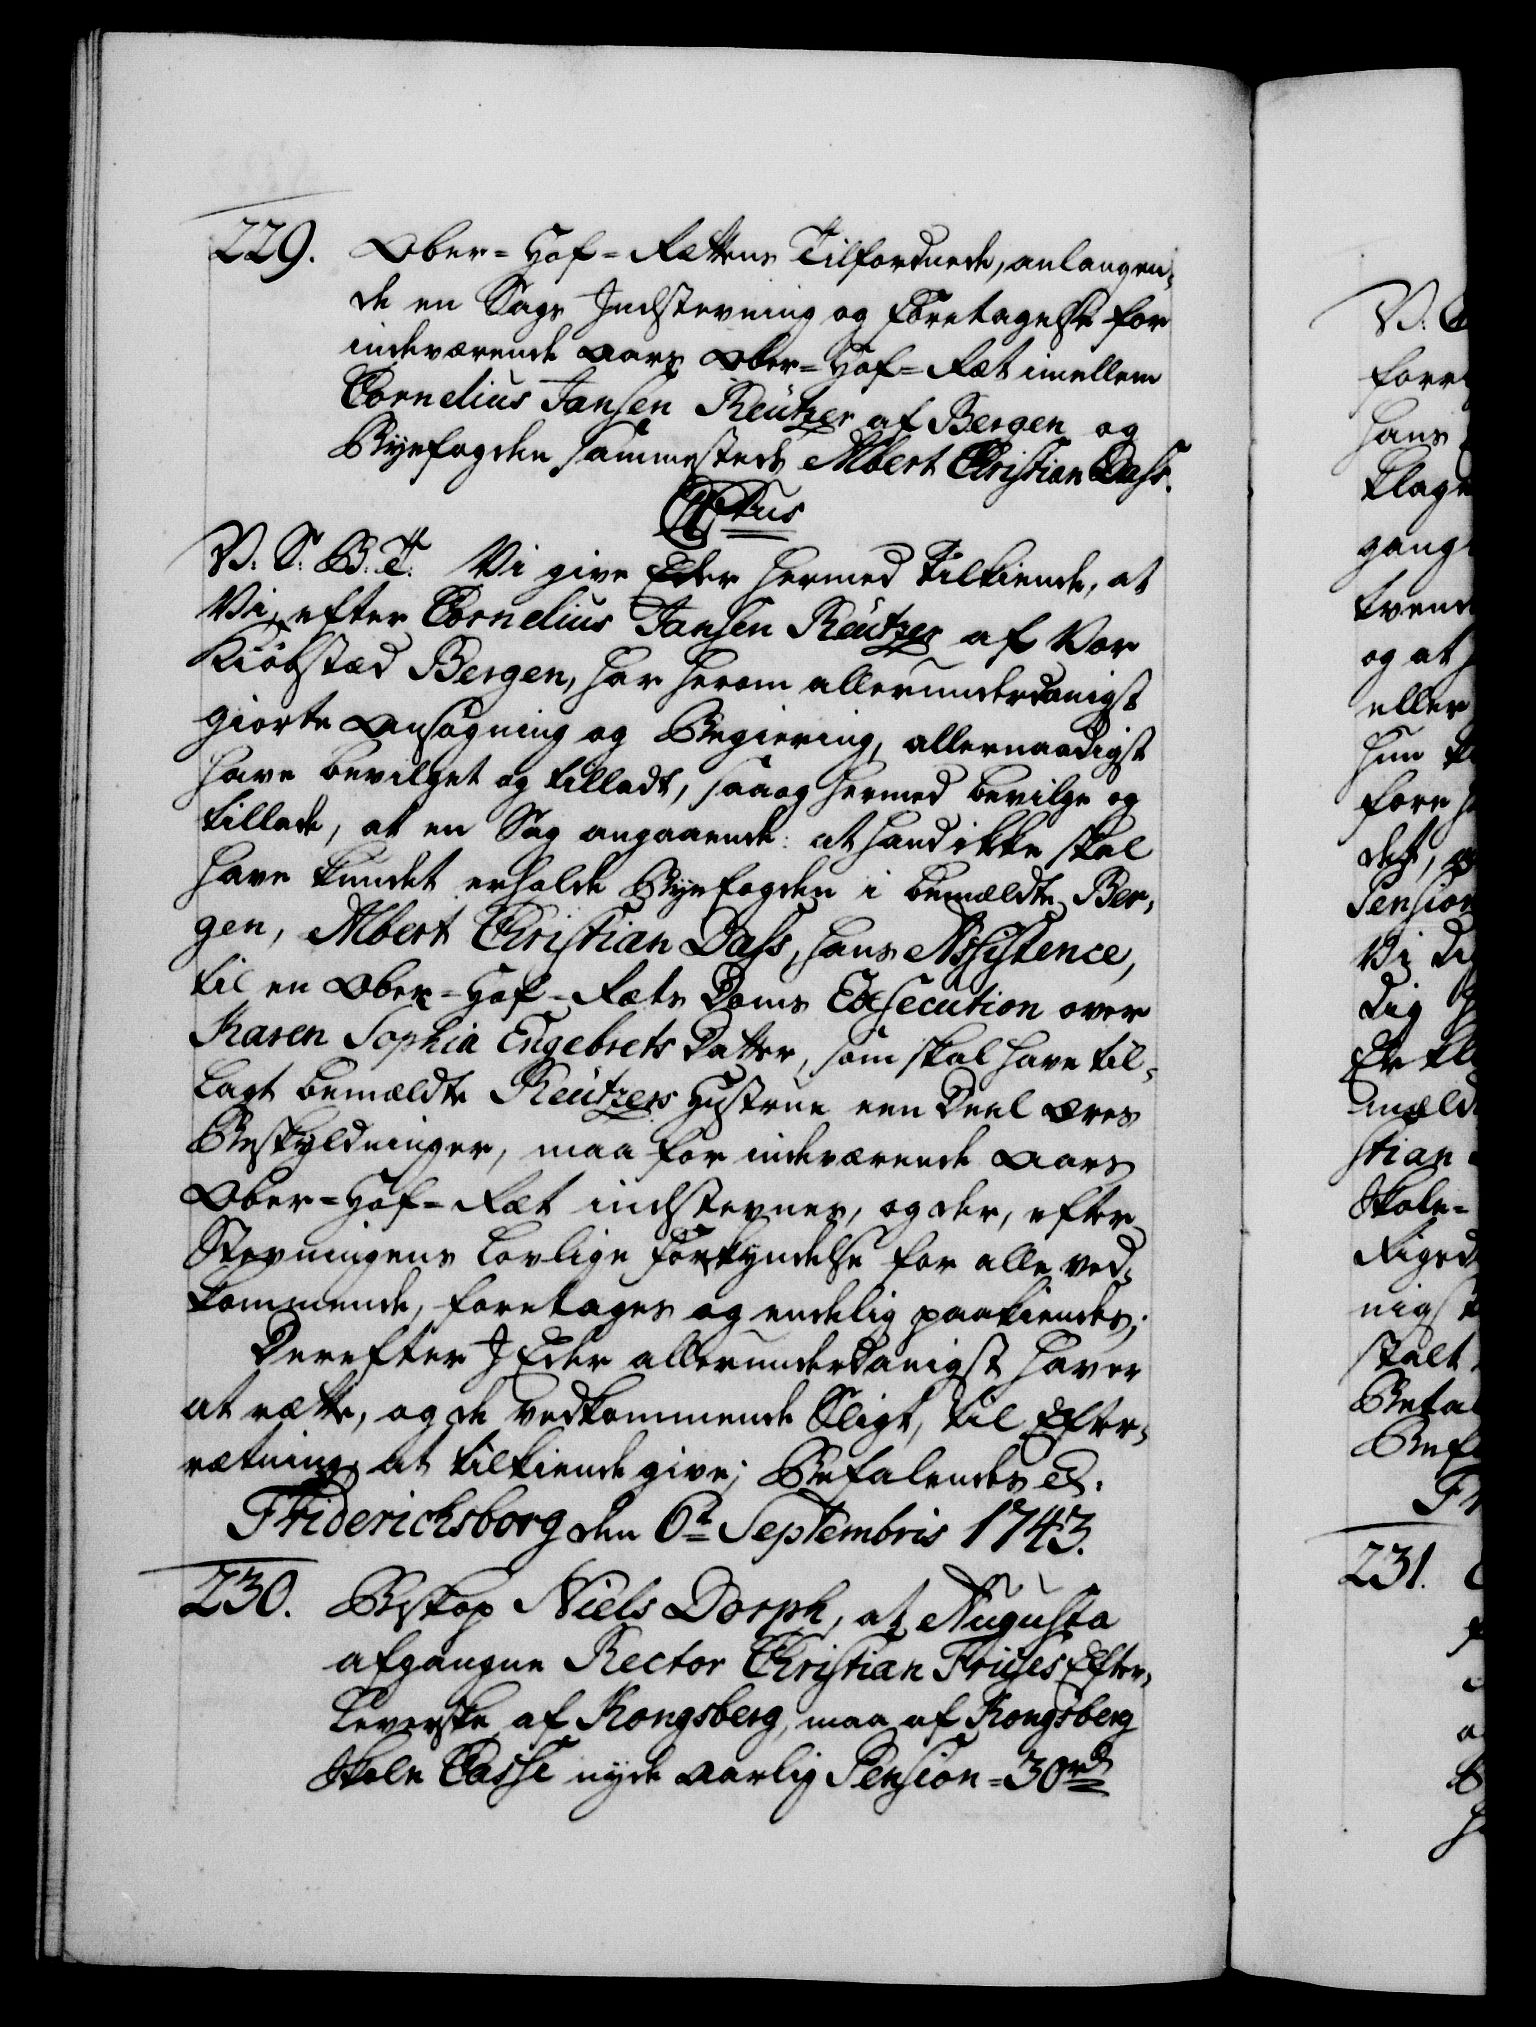 229. Ober-Hof-Rettens Tilforordnede, anlangen-
de en Sags Indstevning og Foretagelse for
indeværende Aars Ober-Hof-Ret imellem
Cornelius Jansen Reützer af Bergen og
Byefogden sammesteds Albert Christian Dass.
Ctus
V. S. B. T. Vi give Eder hermed tilkiende, at
Vi, efter Cornelius Jansen Reützer af Vor
Kiøbstæd Bergen, har herom allerunderdanigst
giorte Ansøgning og Begiering, allernaadigst
have bevilget og tilladt, saaog hermed bevilge og
tillade, at en Sag angaaende: at hand ikke skal
have kundet erholde Byefogden i bemældte Ber-
gen, Albert Christian Dass, hans Assistence,
til en Ober-Hof-Rets Doms Exsecution over
Karen Sophia Engebrets Datter, som skal have til-
lagt bemældte Reützers Hustrue een Deel Æres
Beskyldninger, maa for indeværende Aars
Ober-Hof-Ret indstevnes, og der, efter
Stevningens lovlige Forkyndelse for alle ved-
kommende, foretages og endelig paakiendes;
Derefter I Eder allerunderdanigst haver
at rette, og de vedkommende Sligt, til Efter-
retning, at tilkiende give; Befalendes etc.
Friderichsborg den 6te Septembris 1743.
230. Biskop Niels Dorph, at Augusta
afgangne Rector Christian Frises Efter-
leverske af Kongsberg, maa af Kongsberg
Skole Casse nyde aarlig Pension = 30 rd
V.
forr
hans
klage
gang
tvend
og at
eller
hun
fore
det,
Pension
Vi
Dig
Er
mæld
stian
Skole-
Riged
nigst
skalt
Betal
Bef
Fr
231.